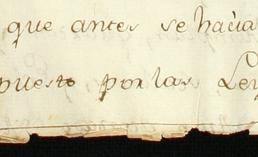 que antes se hacia
puesto por las Ley